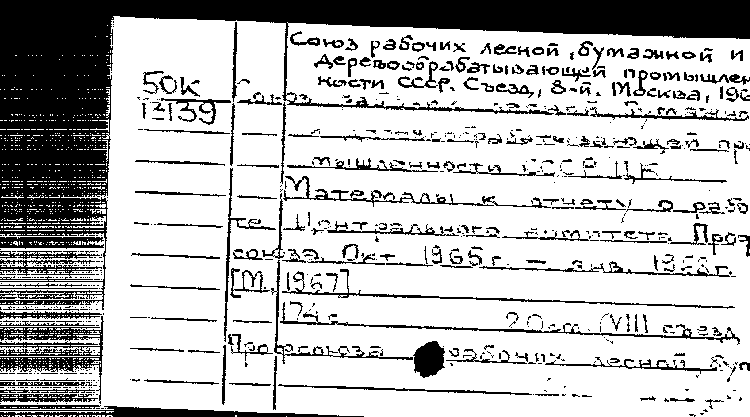 Союз рабочих лесной, бумажной и
деревообрабатывающей промышлен
ности СССР. Съезд, 8-й. Москва, 196
50К
139
Союз рабочих лесной бумажно
и деревообрабатывающей про
мышленности СССР. ЦК.
Материалы к отчету о рабо
те Центрального комитета Проф
союза. Окт. 1965г. – янв. 1968г.
[М. 1967].
174 с. 20см. (VIII съезд
Профсоюза рабочих лесной, бум